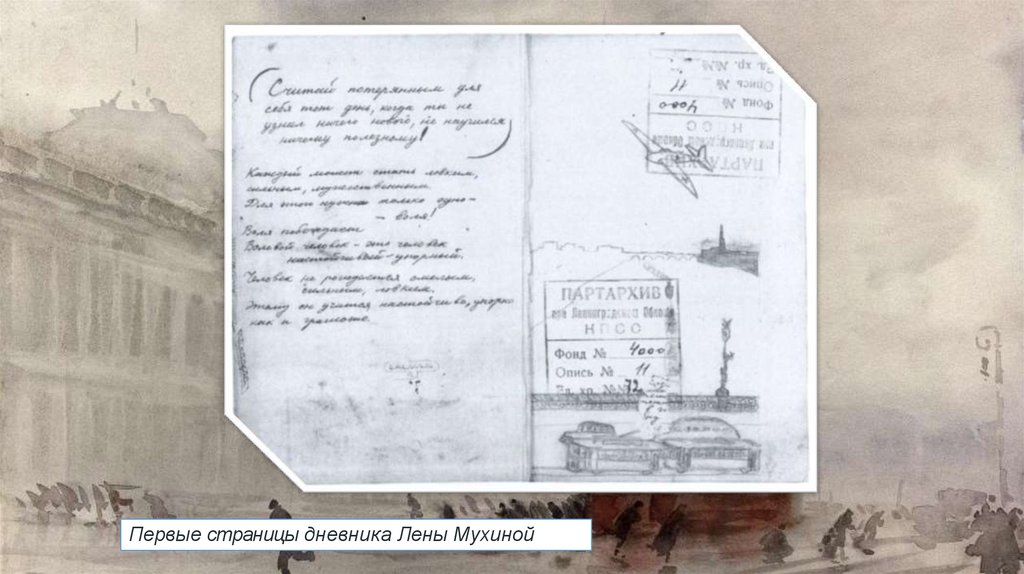 Считай потерянным для
себя тот день, когда ты не
узнал ничего нового, не научился
ничему полезному!
Каждый может стать ловким,
сильным, мужественным.
Для этого нужно только одно –
– воля!
Воля побеждает
Волевой человек – это человек
настойчивый – упорный.
Человек не рождается смелым,
сильным, ловким.
Этому он учится настойчиво, упорно
как и грамоте.
ПАРТАРХИВ
Ленинградской
КПСС
Фонд № 4000
Опись № 11
Ед. хр. №№
ПАРТАРХИВ
Ленинградской Обкома
КПСС
Фонд № 4000
Опись № 11
Ед. хр. №№ 72
Первые страницы дневника Лены Мухиной